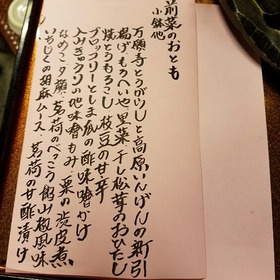 前菜のおとも
小鉢他
万願寺とうがらしと高原いんげんの新引
揚げもろへいや黒菜干し松茸のおひたし
焼とうもろこし 枝豆の甘辛
ブロッコリーとしま瓜の酢味噌かけ
の地味噌もみ 栗の渋皮煮
なめこ夕顔 茗荷のべっこう餡山椒風味
いちじくの胡麻ムース 茗荷の甘酢漬け